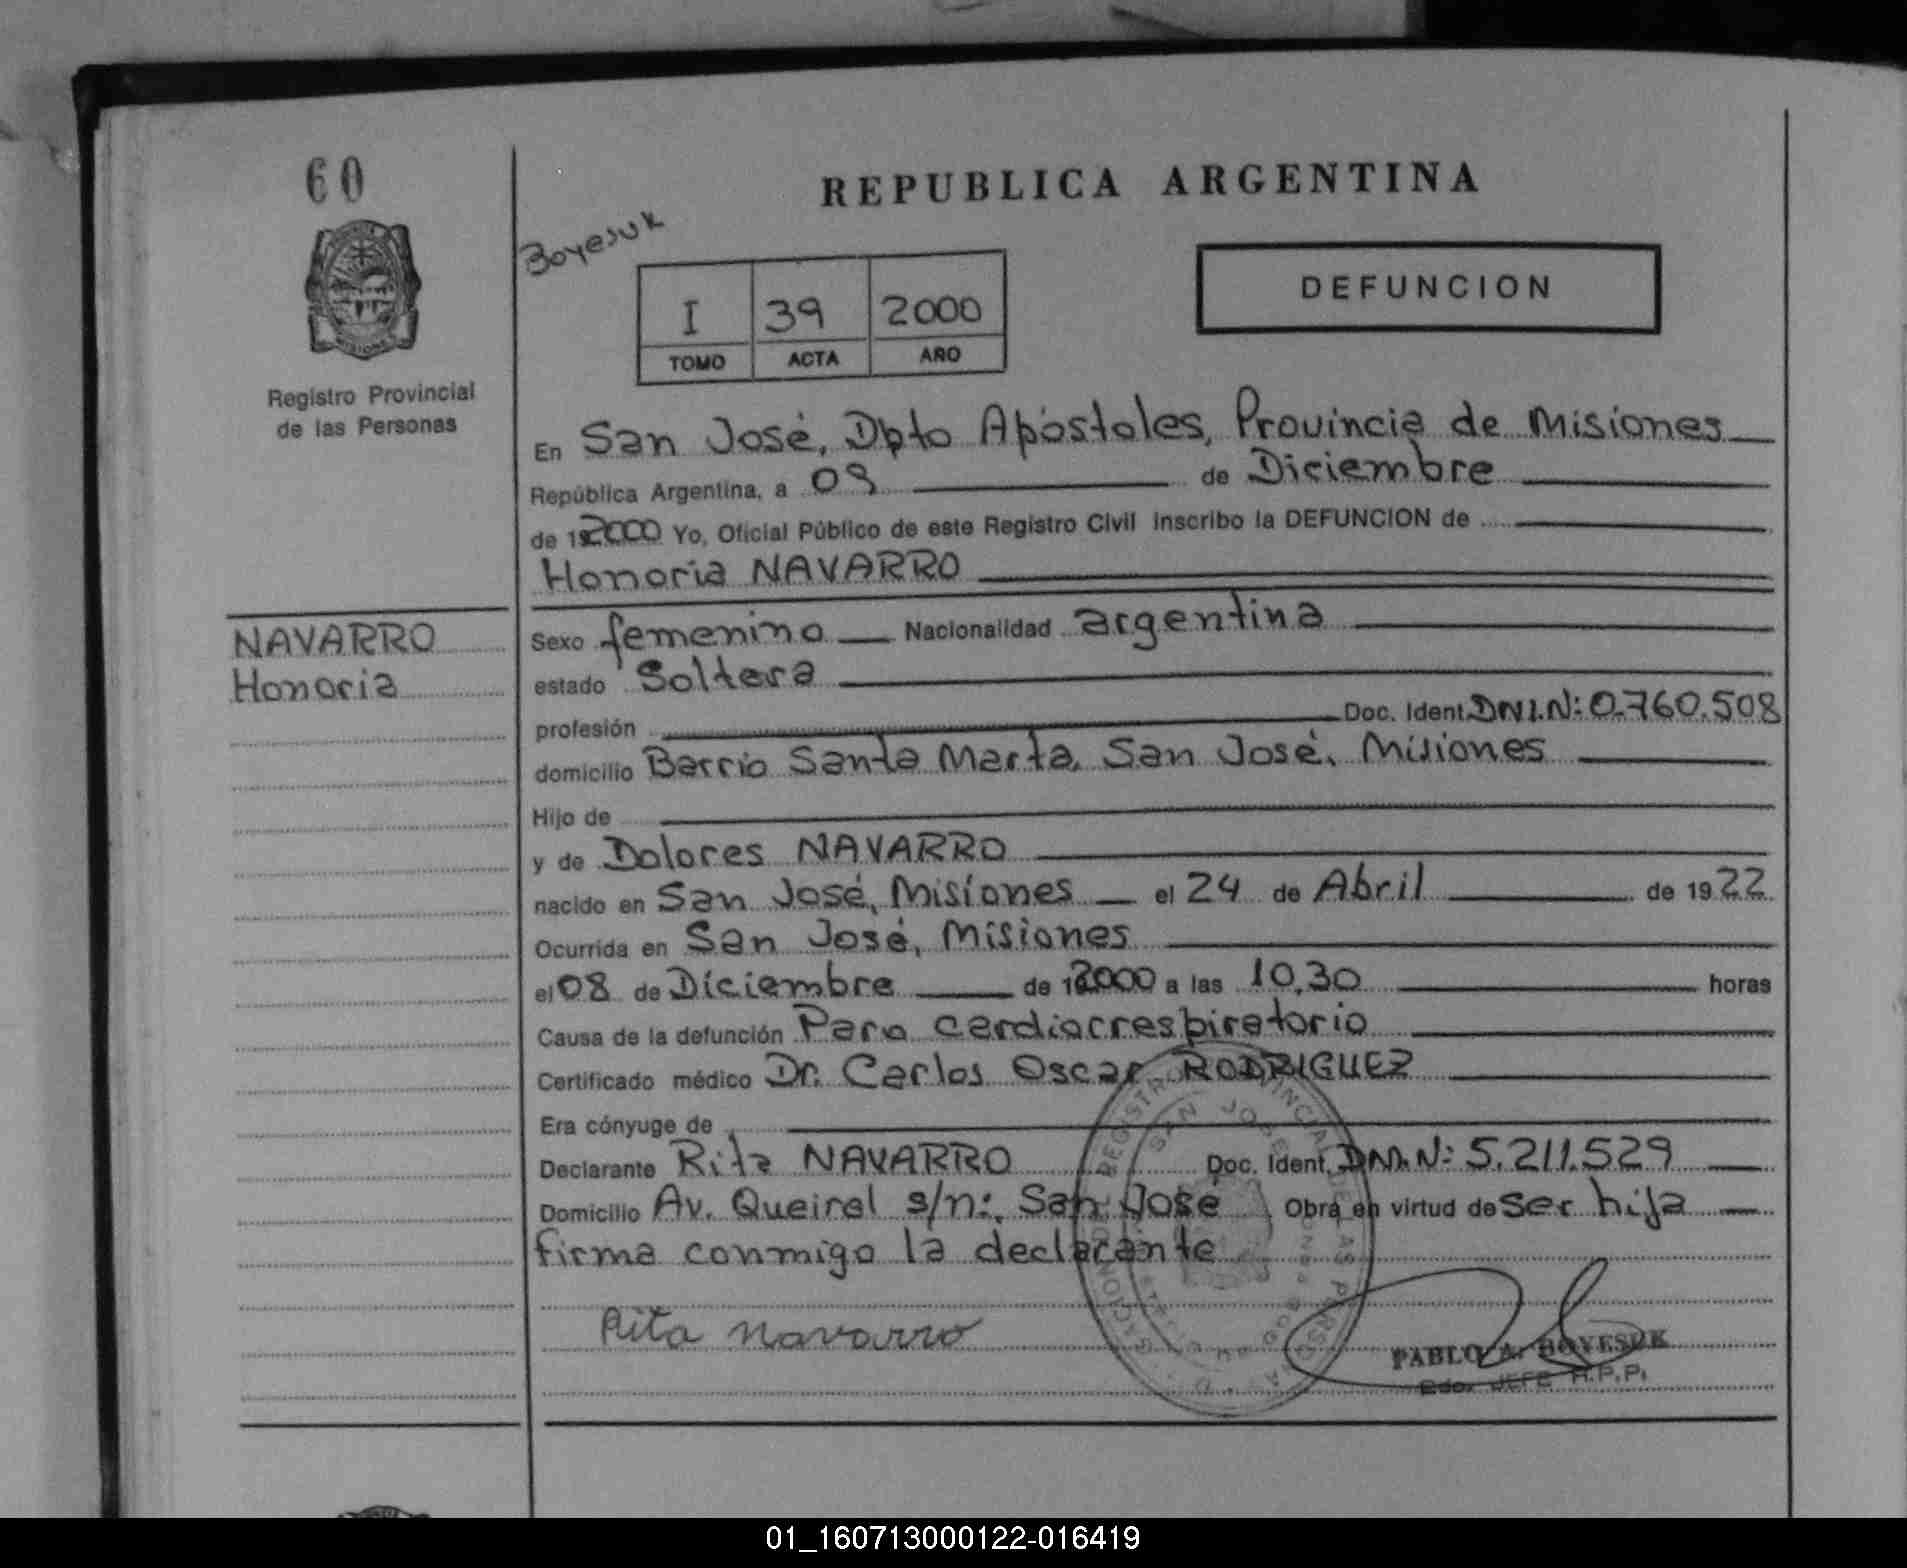 60
REPUBLICA ARGENTINA
Boyesuk
I 39 2000
TOMO ACTA AÑO
DEFUNCION
MISIONES
Registro Provincial
de las Personas
En San José, Dpto Apóstoles, Provincia de Misiones
República Argentina, a 09 de Diciembre
de 2000 Yo, Oficial Público de este Registro Civil inscribo la DEFUNCION de
Honoria NAVARRO
NAVARRO
Honoria
Sexo femenino Nacionalidad argentina
estado Soltera
profesión Doc. Ident. DNI.N: 0.760.508
domicilio Barrio Santa Marta, San José, Misiones
Hijo de
y de Dolores NAVARRO
nacido en San José, Misiones el 24 de Abril de 1922
Ocurrida en San José, Misiones
el 08 de Diciembre de 2000 a las 10,30 horas
Causa de la defunción Paro cardiacrrespiratorio
Certificado médico Dr. Carlos Oscar RODRIGUEZ
Era cónyuge de
Declarante Rita NAVARRO Doc. Ident. DNI.N: 5.211.529
Domicilio Av. Queirel s/n:, San José Obra en virtud de ser hija
firma conmigo la declarante
Rita navarro
REGISTRO PROVINCIAL DE LAS PERSONAS
SAN JOSE
PABLO A. BOYESUK
JEFE R.P.P.
01_160713000122-016419